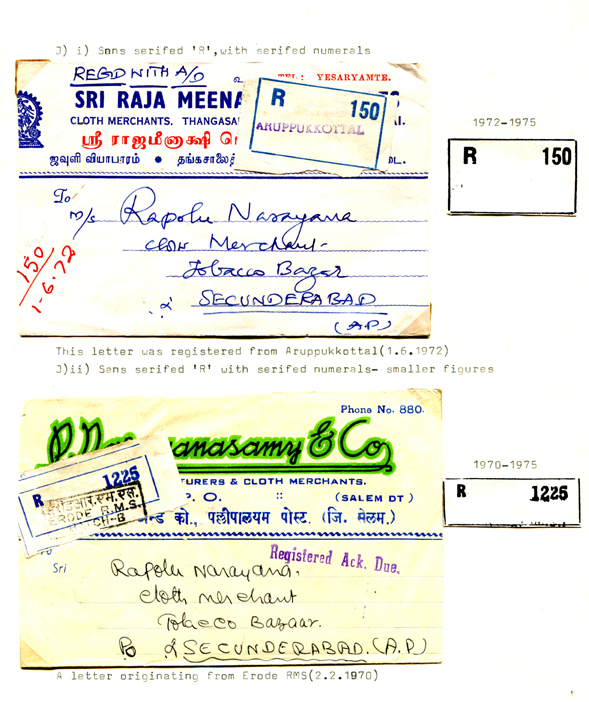 J) i) Sans serifed 'R',with serifed numerals
REGD WITH A/D
TEL: YESARYAMTE.
SRI RAJA MEENA
CLOTH MERCHANTS, THANGASA
ஸ்ரீ ராஜமீனாக்ஷி
ஜவுளி வியாபாரம் • தங்கசாலைத்
R 150
ARUPPUKKOTTAL
To
M/s Rapolu Narayana
Cloth Merchant-
Tobacco Bazar
SECUNDERABAD
(A.P)
150
1-6.72
1972-1975
R 150
This letter was registered from Aruppukkottal(1.6.1972)
J)ii) Sans serifed 'R' with serifed numerals- smaller figures
Phone No. 880.
anasamy & Co
TURERS & CLOTH MERCHANTS.
P. O. :: (SALEM DT)
न्ड को., पलीपालयम पोस्ट. (जि. मेलम.)
R 1225
आर.एम.एस.
ERODE R.M.S.
CH-B
Registered Ack. Due.
Sri Rapolu Narayana.
Cloth merchant
Tobacco Bazaar.
Po SECUNDERABAD. (A.P)
1970-1975
R 1225
A letter originating from Erode RMS(2.2.1970)